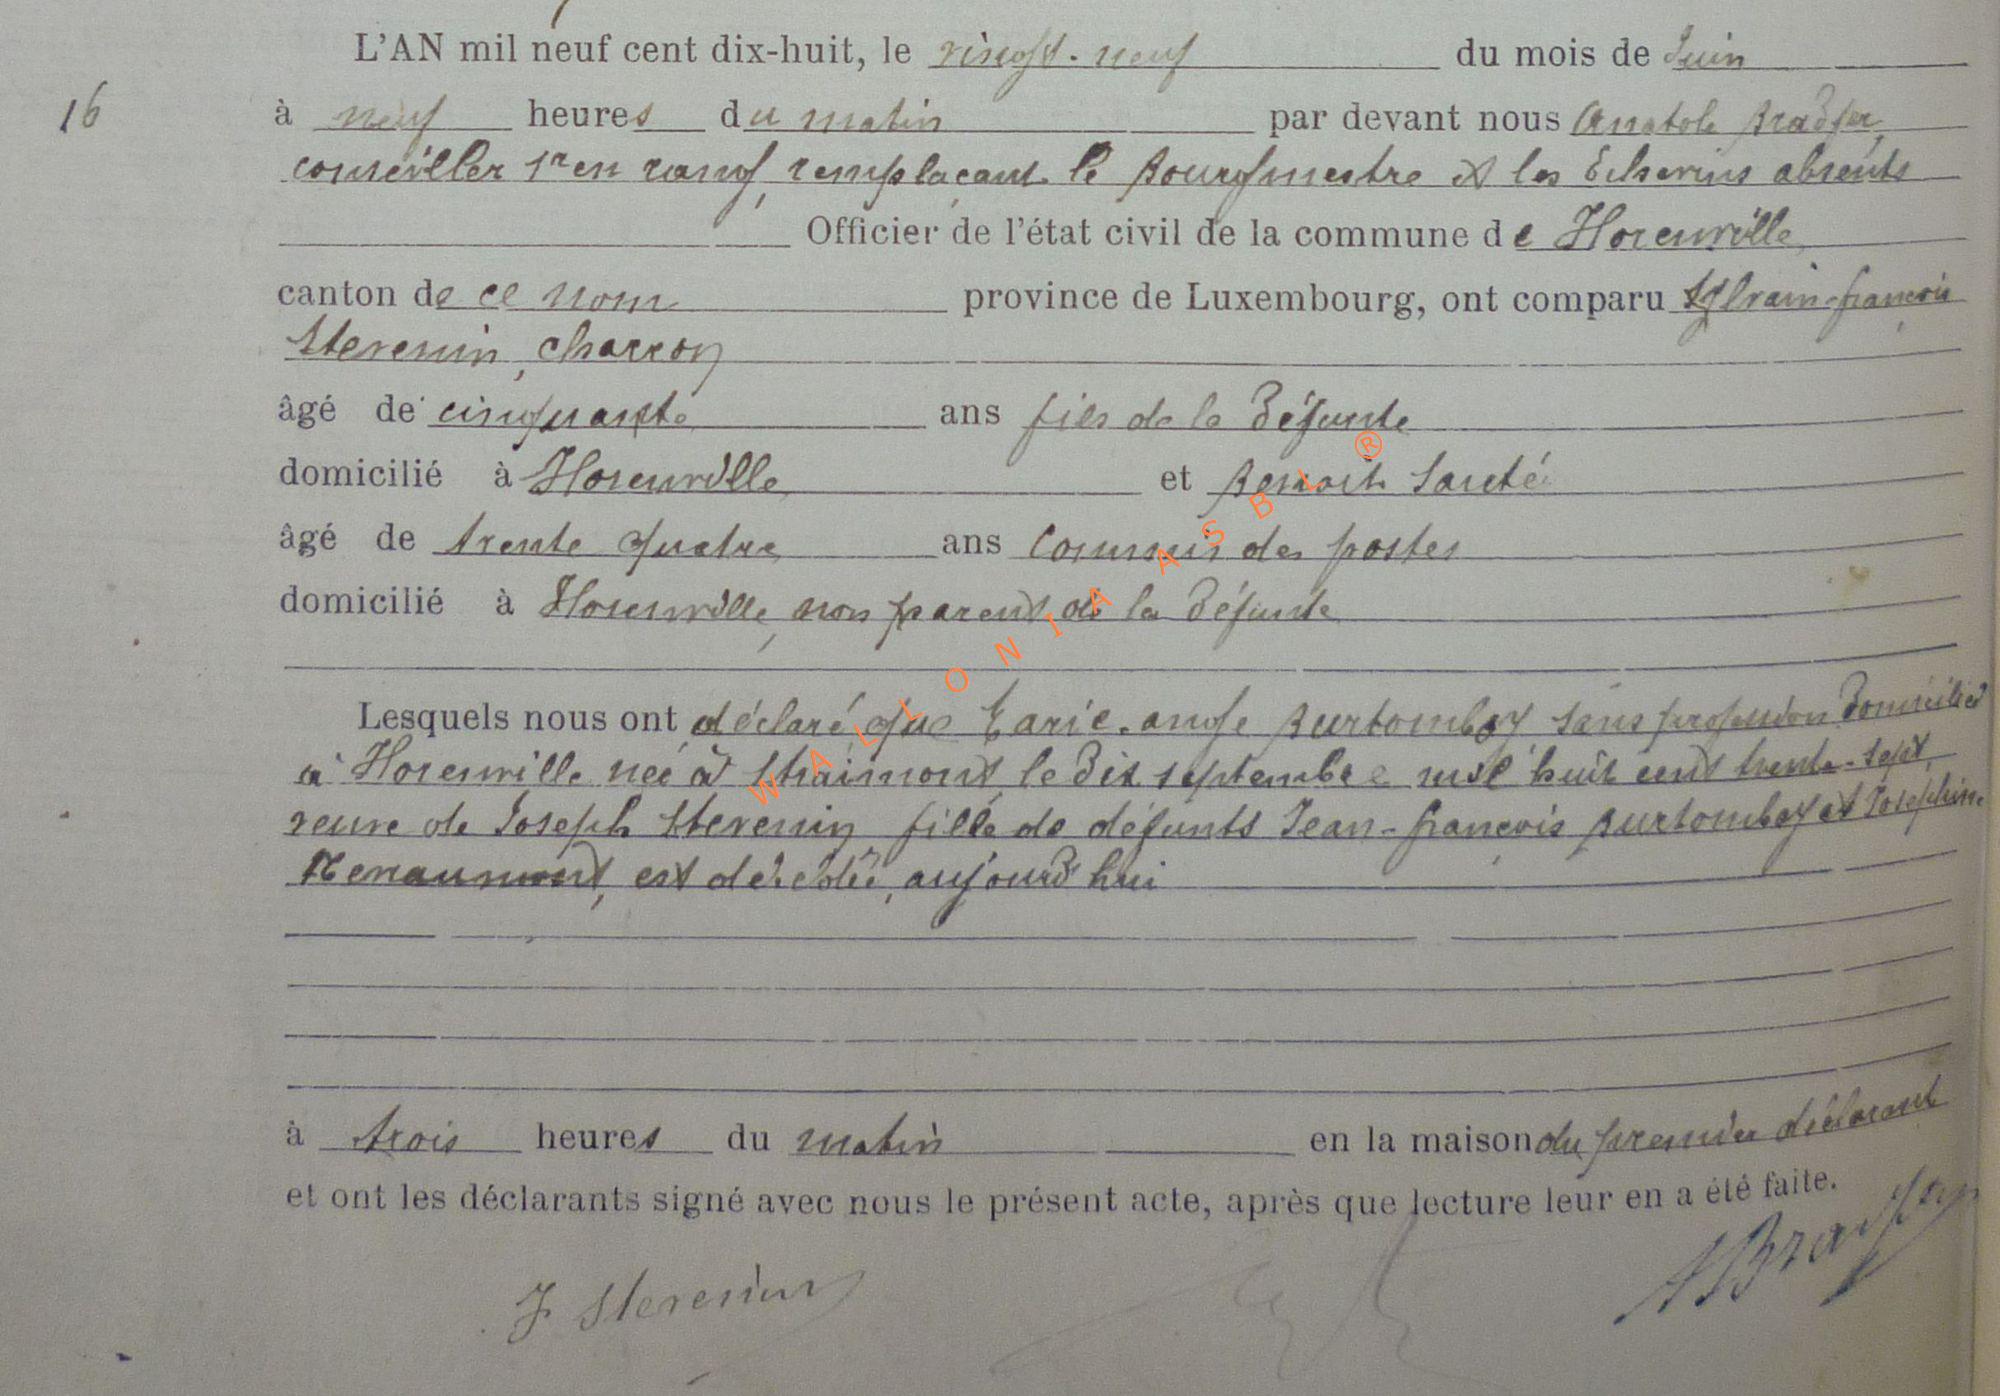 L'AN mil neuf cent dix-huit, le vingt-neuf du mois de Juin
16
à neuf heures du matin par devant nous Anatole Bradfer,
conseiller 1er en rang, remplaçant le Bourgmestre et les Echevins absents
Officier de l'état civil de la commune de Florenville,
canton de ce nom province de Luxembourg, ont comparu Sylvain-françois
Stevenin, charron
âgé de cinquante ans fils de la défunte
domicilié à Florenville et Benoit
âgé de trente quatre ans Commis des postes
domicilié à Florenville, non parent de la défunte
Lesquels nous ont déclaré que Marie-ange Purtomboy sans profession domiciliée
à Florenville née à Straimont, le dix septembre mil huit cent trente-sept,
veuve de Joseph Stevenin fille de défunts Jean-françois Purtomboy et Joséphine
est décédée, aujourd'hui
à trois heures du matin en la maison du premier déclarant
et ont les déclarants signé avec nous le présent acte, après que lecture leur en a été faite.
ABradfer
F Stevenin
WALLONIA ASBL ®